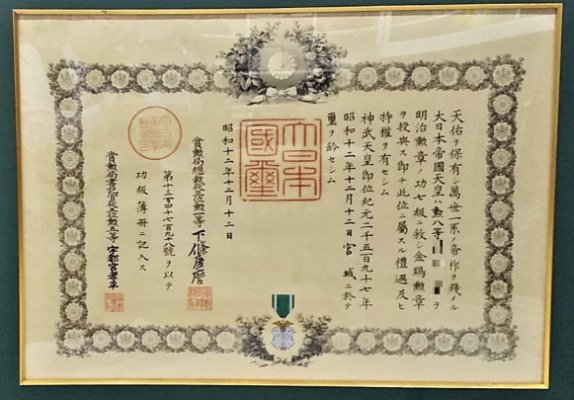 天佑ヲ保有シ萬世一系ノ帝祚ヲ踐メル
大日本帝國天皇ハ勲八等ヲ
明治勲章ノ功七級ニ敘シ金鵄勲章
ヲ授與ス即チ此位ニ屬スル禮遇及ヒ
特權ヲ有セシム
神武天皇即位紀元二千五百九十七年
昭和十二年十二月十二日宮城ニ於テ
璽ヲ鈐セシム
大日本國璽
昭和十二年十二月十二日
賞勲局總裁勲一等下條康麿
號ヲ以テ
功級簿冊ニ記入ス
賞勲局書記官勲五等宇都宮孝平